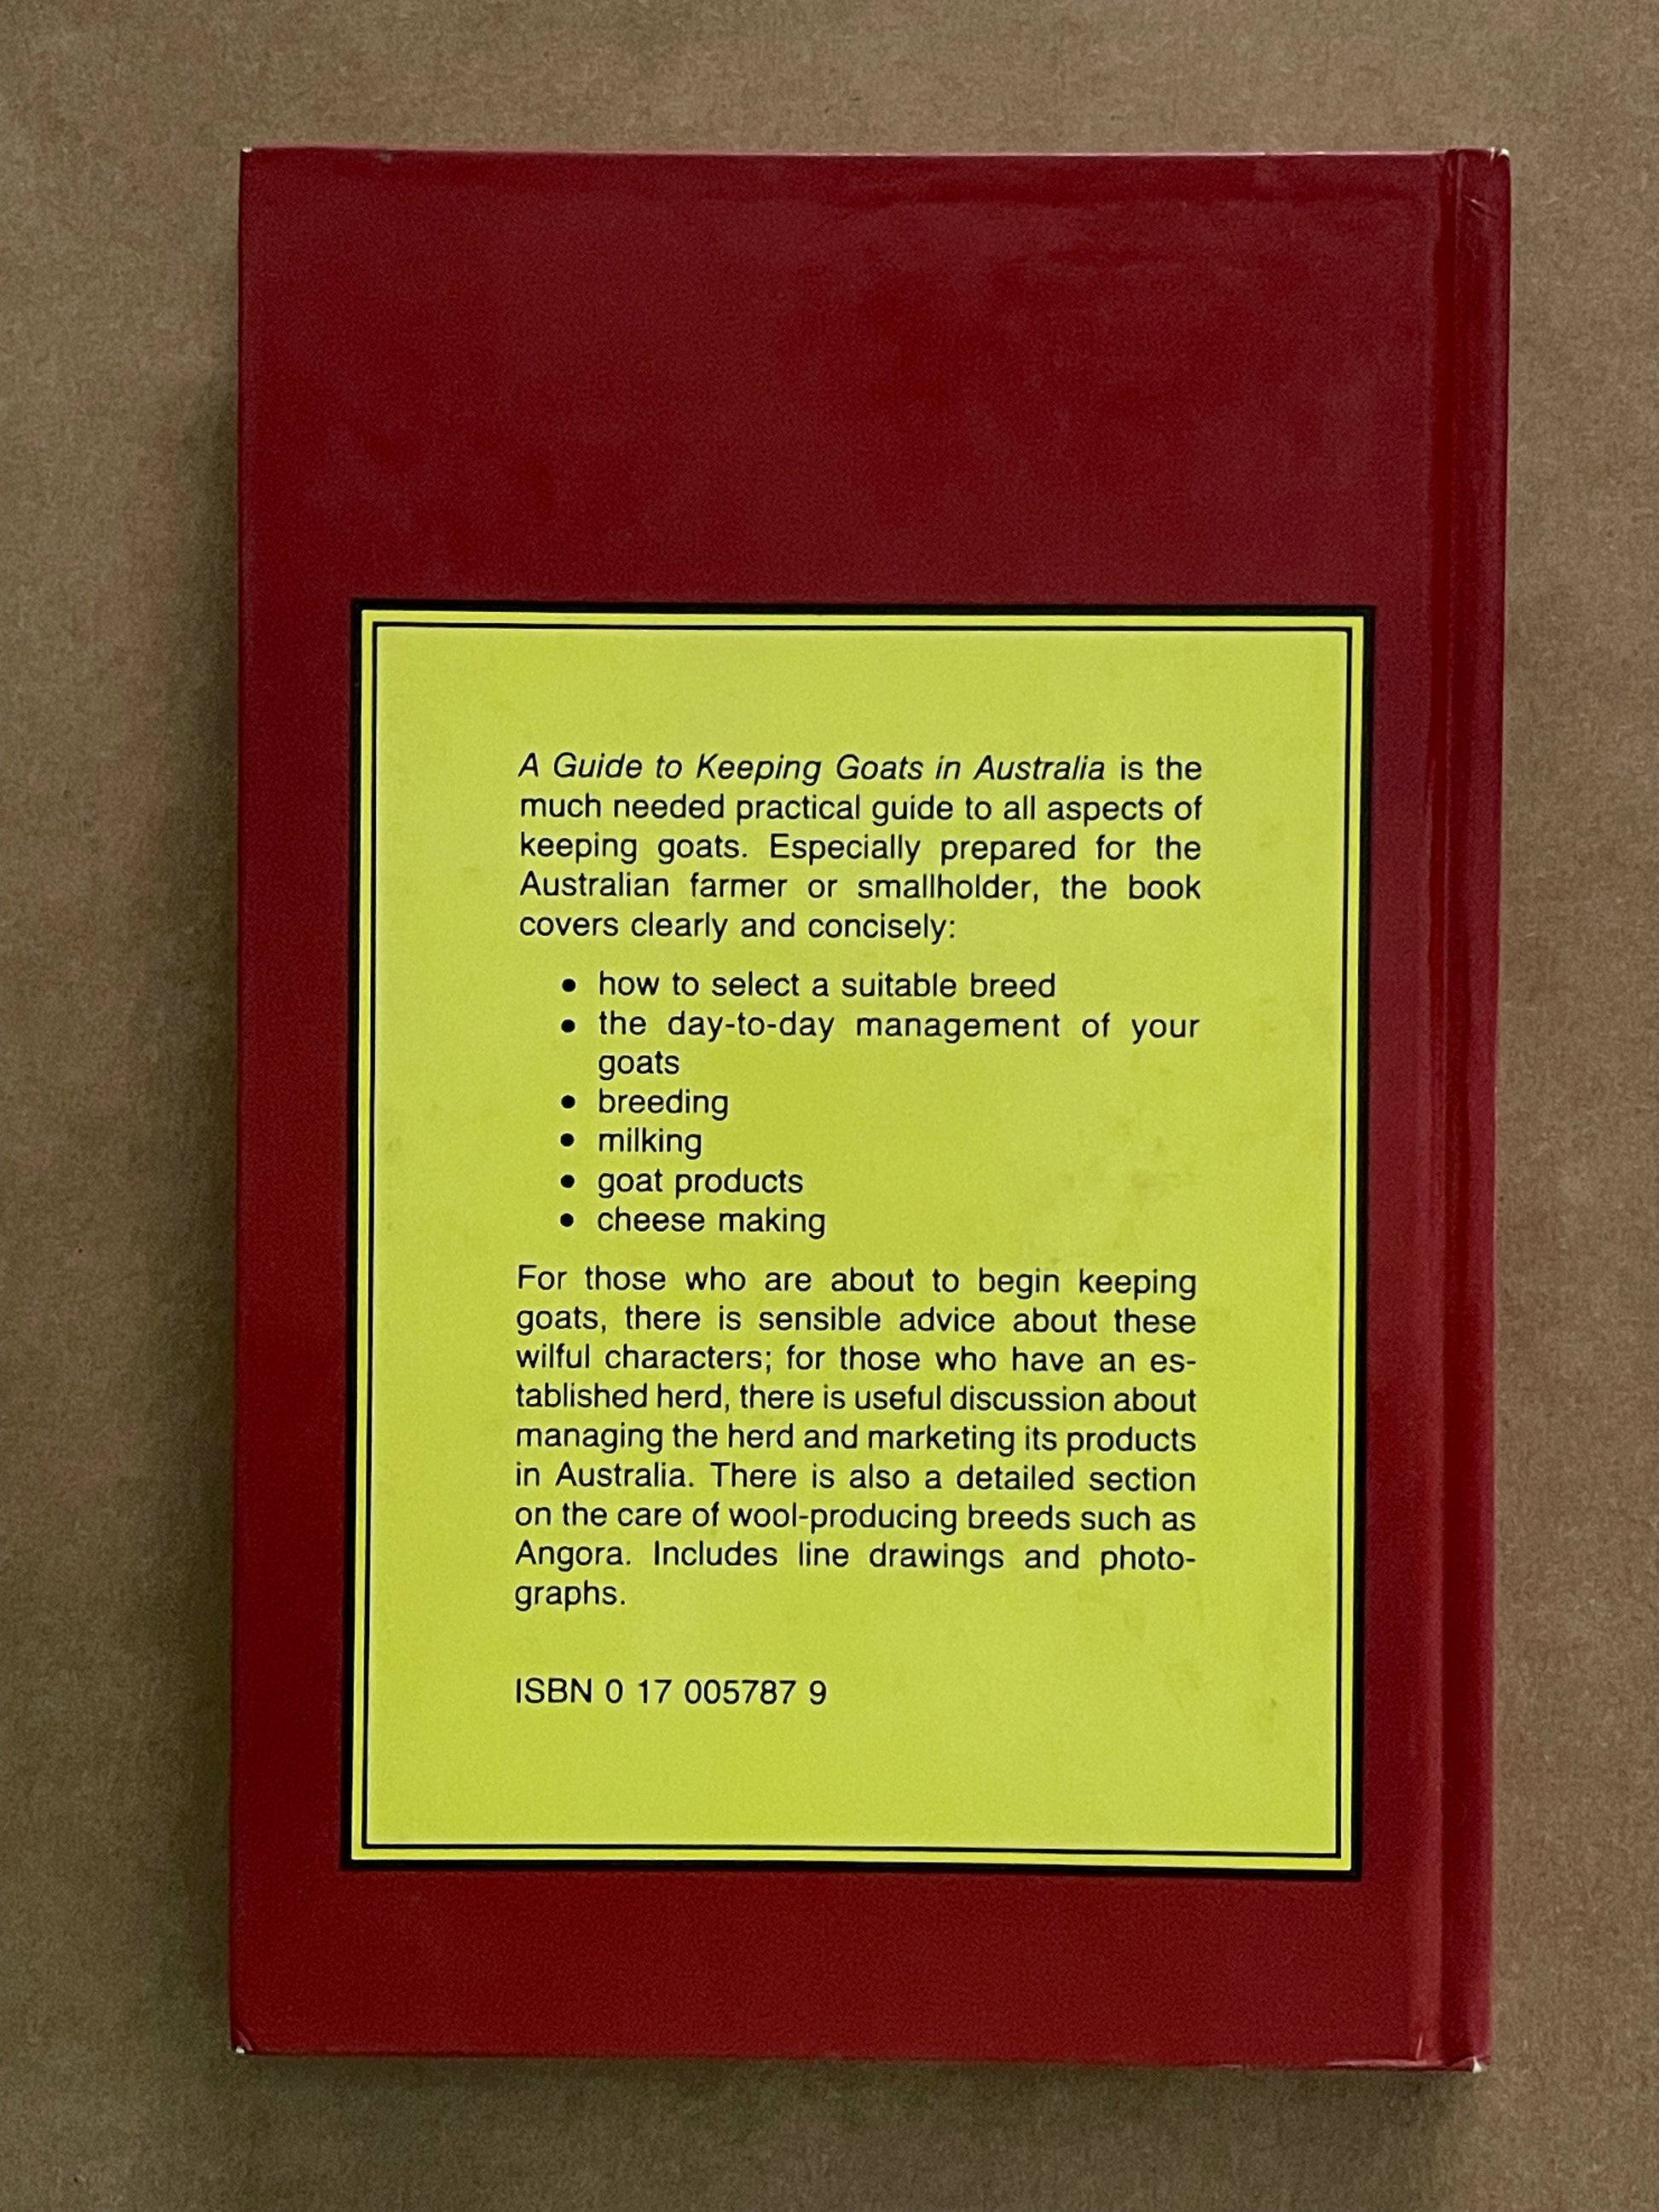 A Guide to Keeping Goats in Australia is the
much needed practical guide to all aspects of
keeping goats. Especially prepared for the
Australian farmer or smallholder, the book
covers clearly and concisely:
• how to select a suitable breed
• the day-to-day management of your
goats
• breeding
• milking
• goat products
• cheese making
For those who are about to begin keeping
goats, there is sensible advice about these
wilful characters; for those who have an es-
tablished herd, there is useful discussion about
managing the herd and marketing its products
in Australia. There is also a detailed section
on the care of wool-producing breeds such as
Angora. Includes line drawings and photo-
graphs.
ISBN 0 17 005787 9